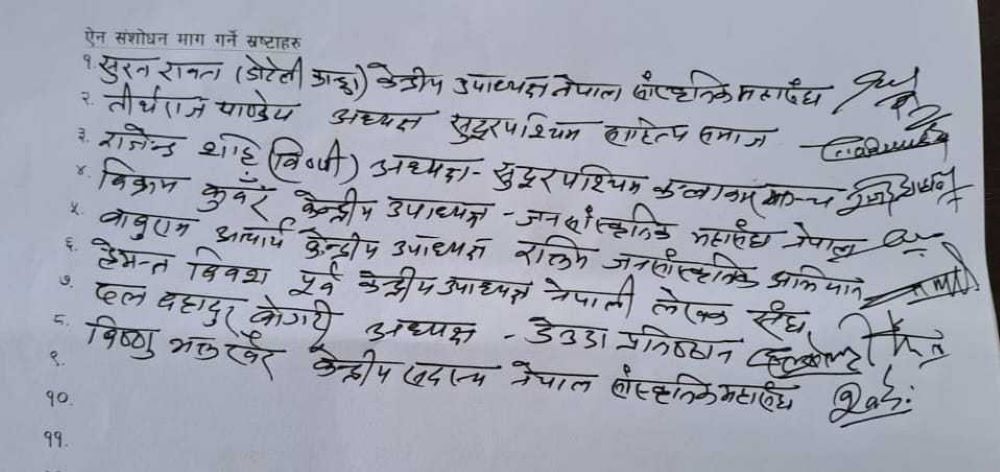 ऐन संशोधन माग गर्ने स्रष्टाहरु
१. सुरत रावल (डोटेली काङ्छा) केन्द्रीय उपाध्यक्ष नेपाल सांस्कृतिक महासंघ
२. तीर्थराज पाण्डेय अध्यक्ष सुदूरपश्चिम साहित्य समाज
३. राजेन्द्र शाहि (वि०पी) अध्यक्ष - सुदूरपश्चिम कलाकार मञ्च
४. विक्रम कुवँर केन्द्रीय उपाध्यक्ष - जनसांस्कृतिक महासंघ नेपाल
५. बाबुराम आचार्य केन्द्रीय उपाध्यक्ष रक्तिम जनसांस्कृतिक अभियान
६. हेमन्त विवश पूर्व केन्द्रीय उपाध्यक्ष नेपाली लेखक संघ
७. दल बहादुर अध्यक्ष - डेउडा प्रतिष्ठान
८. विष्णु भक्त केन्द्रीय सदस्य नेपाल सांस्कृतिक महासंघ
९.
१०.
११.